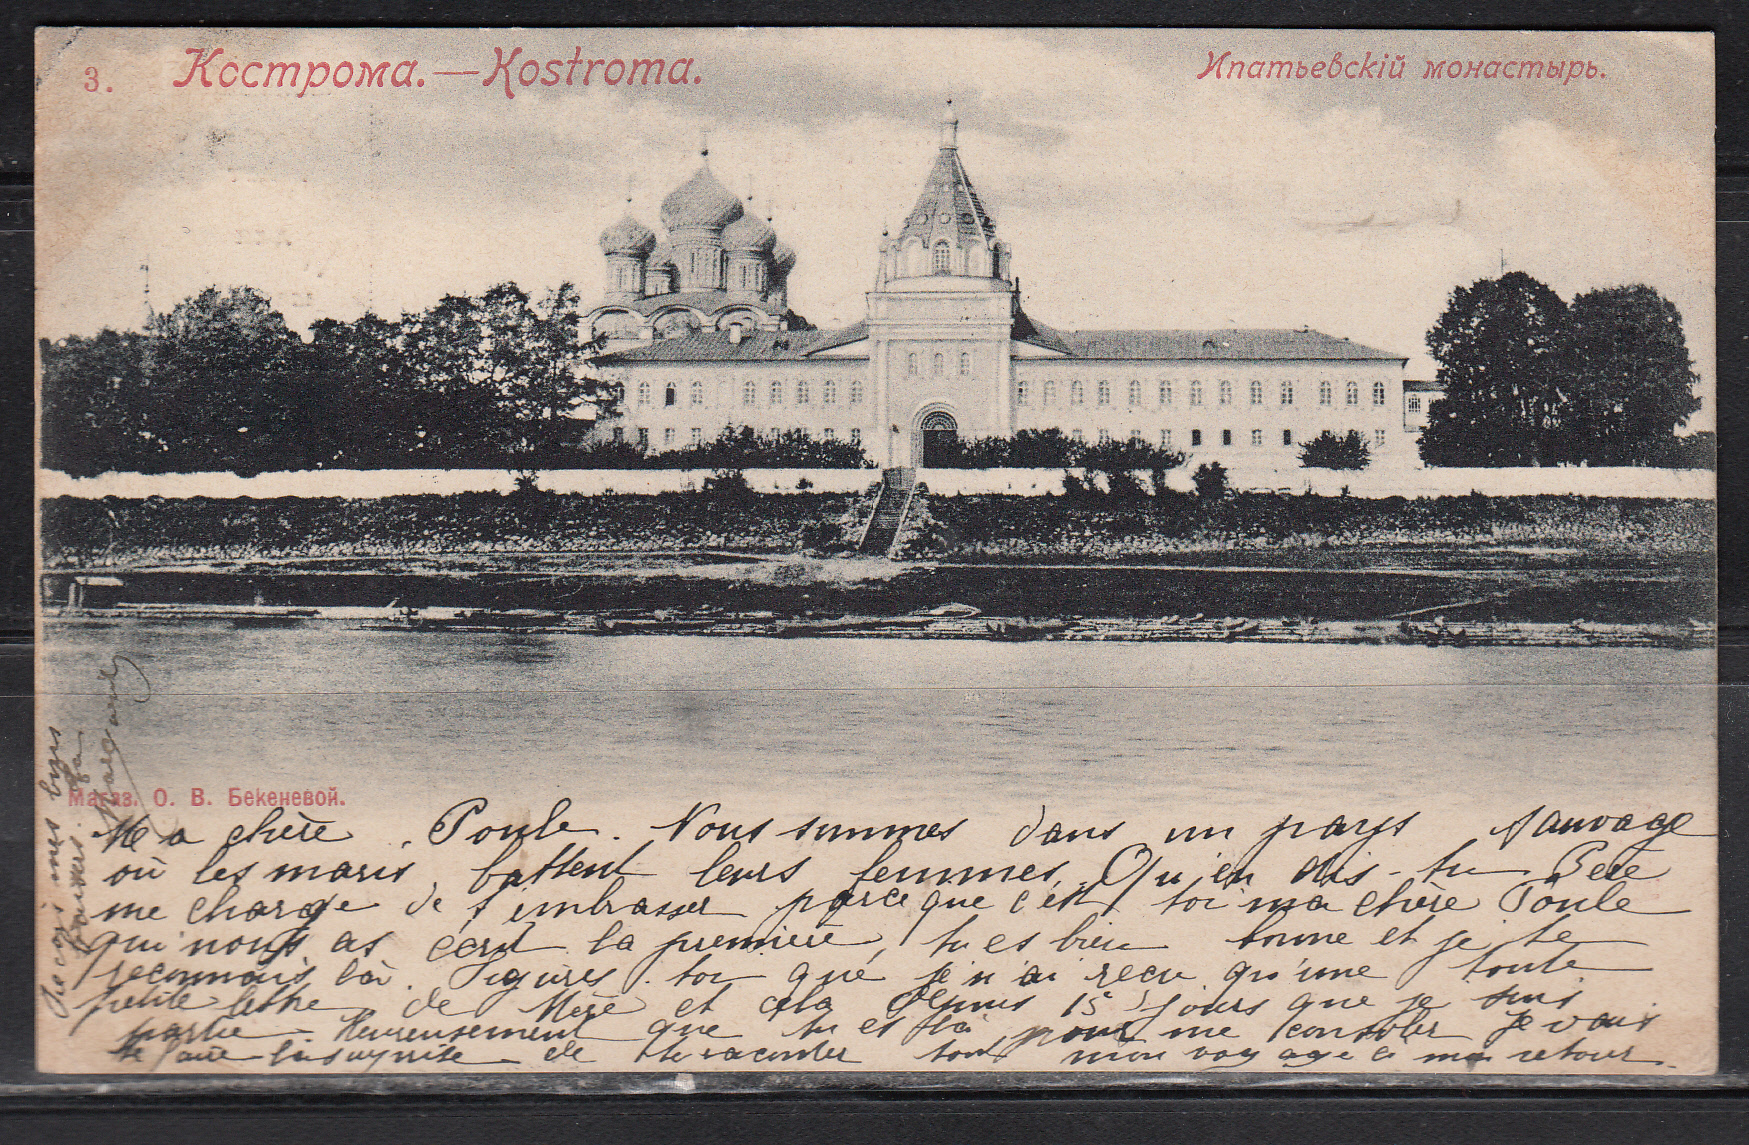 3. Кострома.—Kostroma.
Ипатьевскій монастырь.
Магаз. О. В. Бекеневой.
Ma chère Poule. Nous sommes dans un pays sauvage
où les maris battent leurs femmes. Qu'en dis-tu Père
me charge de t'embrasser parce que c'est toi ma chère Poule
qui nous as écrit la première, tu es bien bonne et je te
reconnais là. Figures-toi que je n'ai reçu qu'une toute
petite lettre de Mère et cela depuis 15 jours que je suis
partie. Heureusement que tu es là pour me consoler je vais
te faire la surprise de te raconter tout mon voyage à mon retour.
Reçois mes bons
baisers.